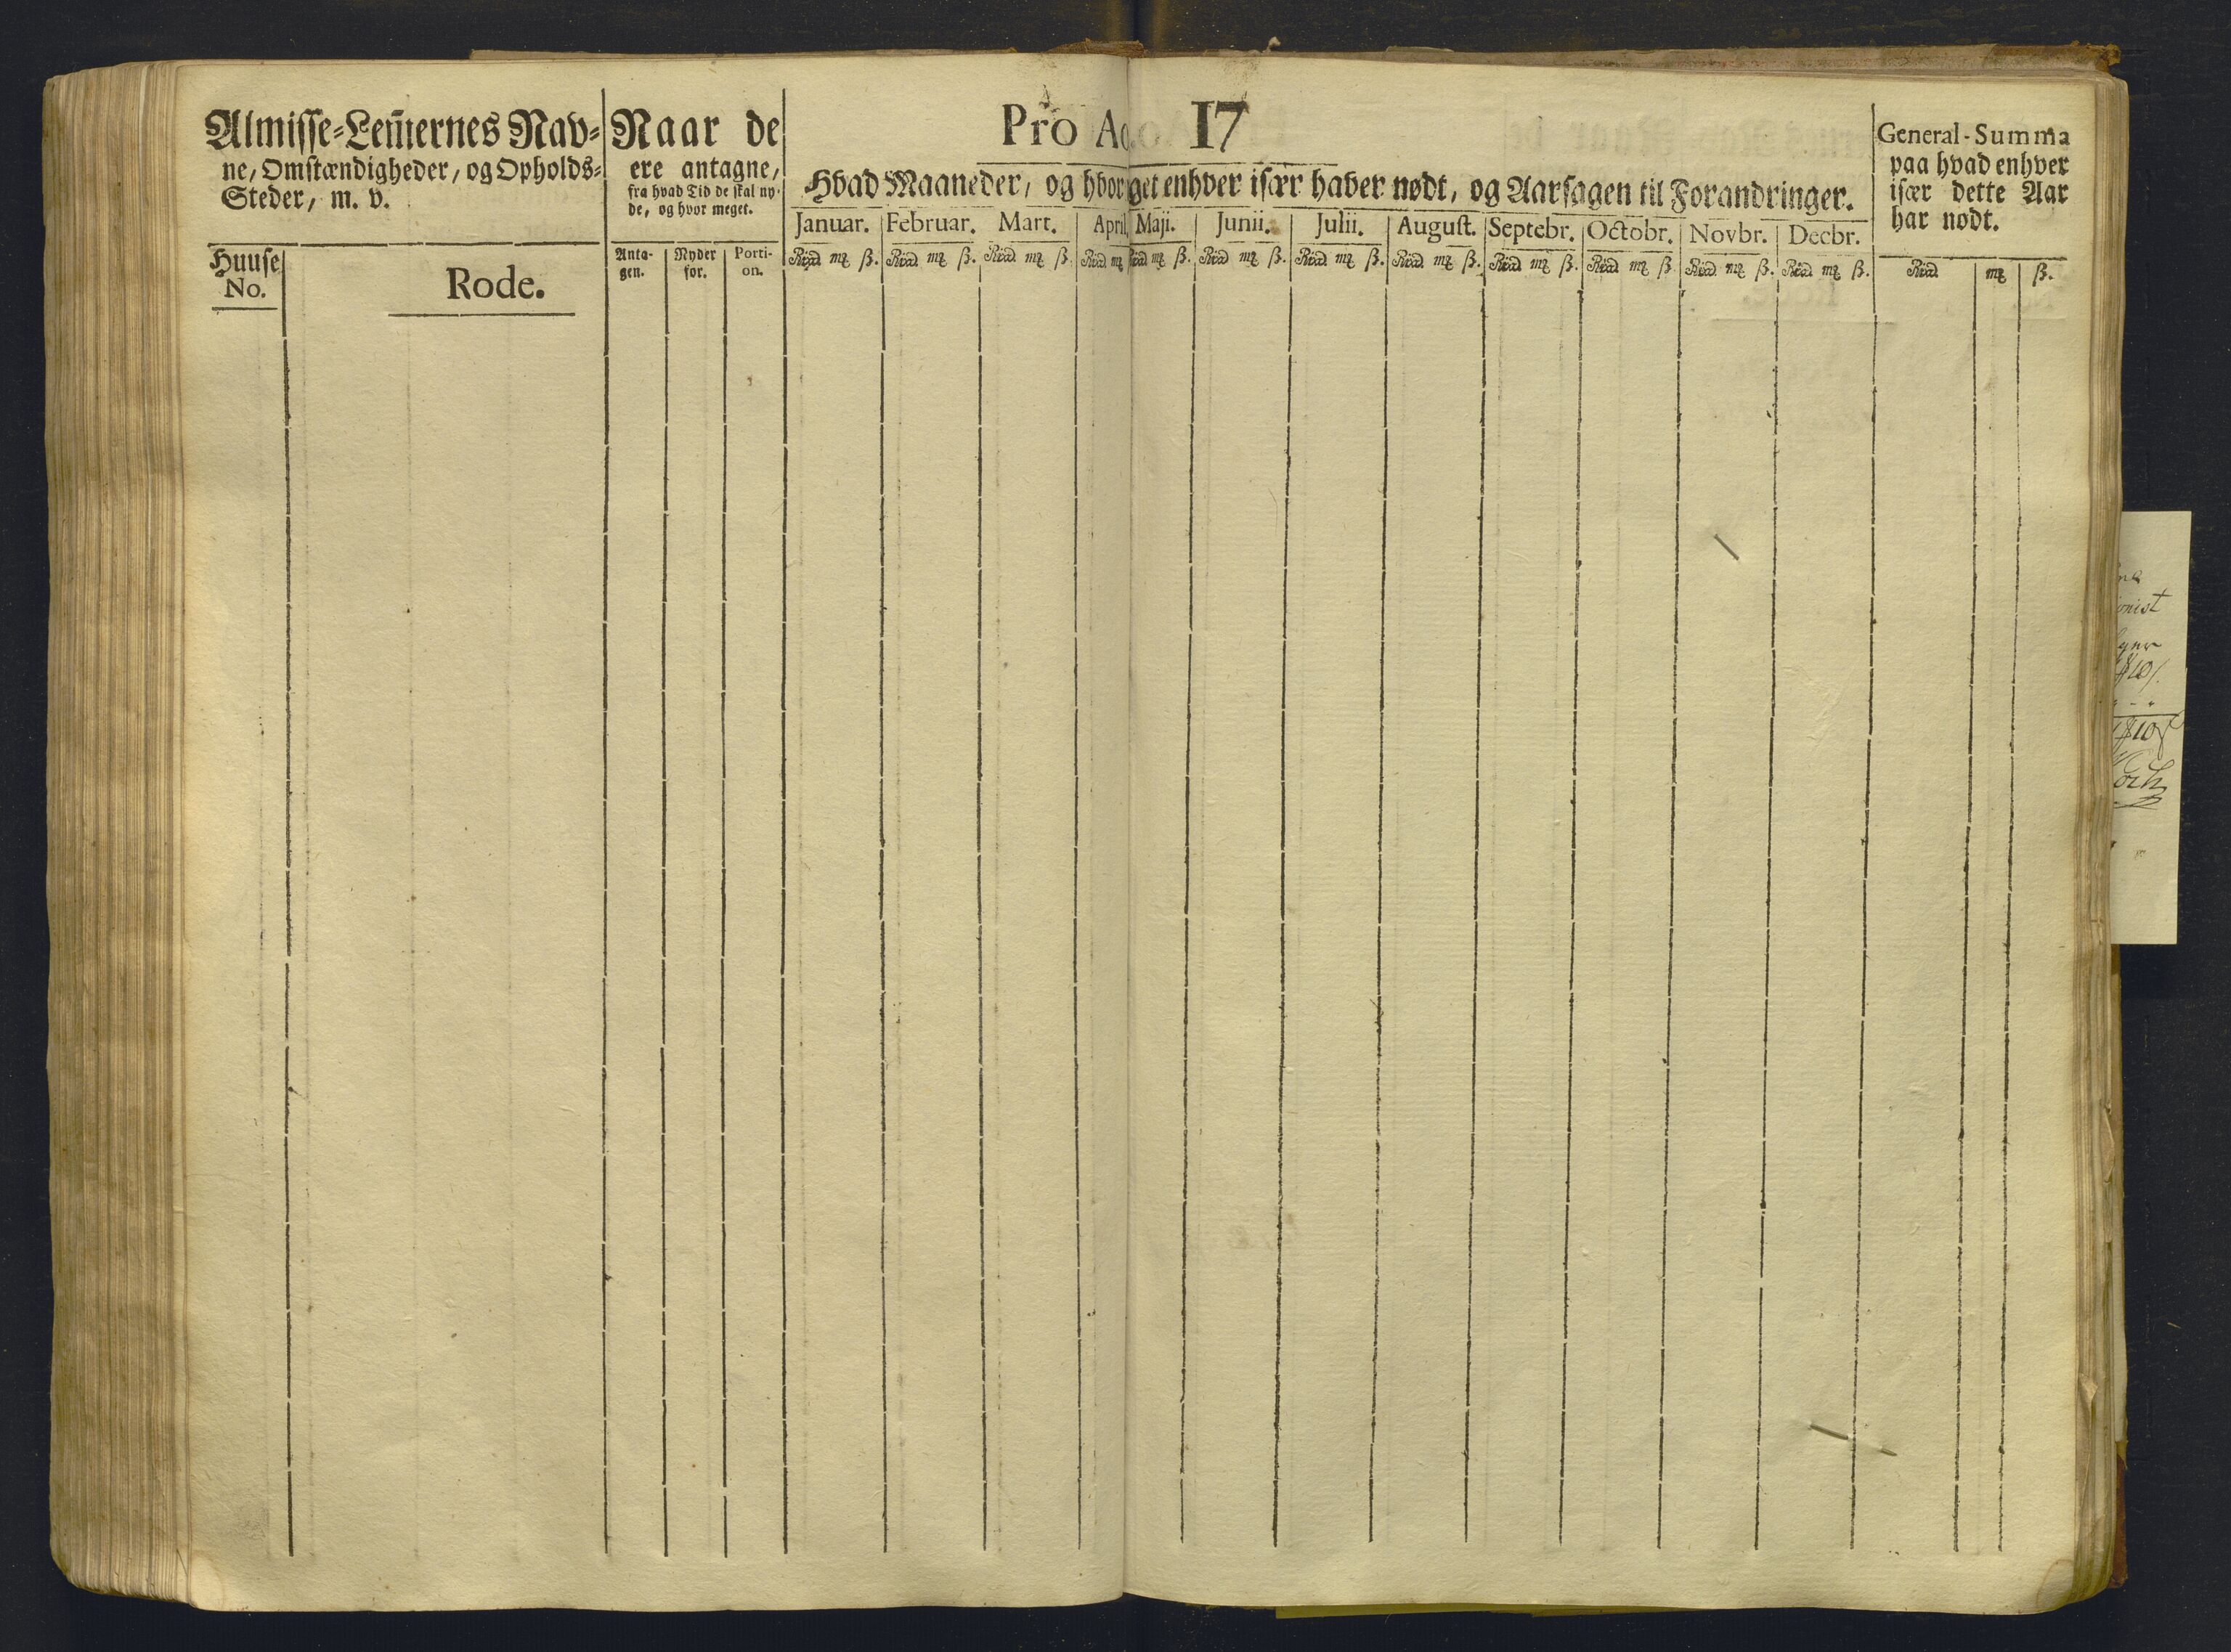 Almisse-Lem̃ernes Nav-
ne, Omstændigheder, og Opholds-
Steder, m. v.
Huuse
No.
Rode.
Naar de
ere antagne,
fra hvad Tid de skal ny-
de, og hvor meget.
Anta-
gen.
Nyder
for.
Porti-
on.
Pro A o. 17
Hvad Maaneder, og hvor get enhver især haver nødt, og Aarsagen til Forandringer.
Januar. Februar. Mart. April Maji. Junii. Julii. August. Septebr. Octobr. Novbr. Decbr.
Rixd mẜ ß. Rixd mẜ ß. Rixd mẜ ß. Rixd mẜ Rixd mẜ ß. Rixd mẜ ß. Rixd mẜ ß. Rixd mẜ ß. Rixd mẜ ß. Rixd mẜ ß. Rixd mẜ ß. Rixd mẜ ß.
General-Summa
paa hvad enhver
især dette Aar
har nødt.
Rixd mẜ ß.